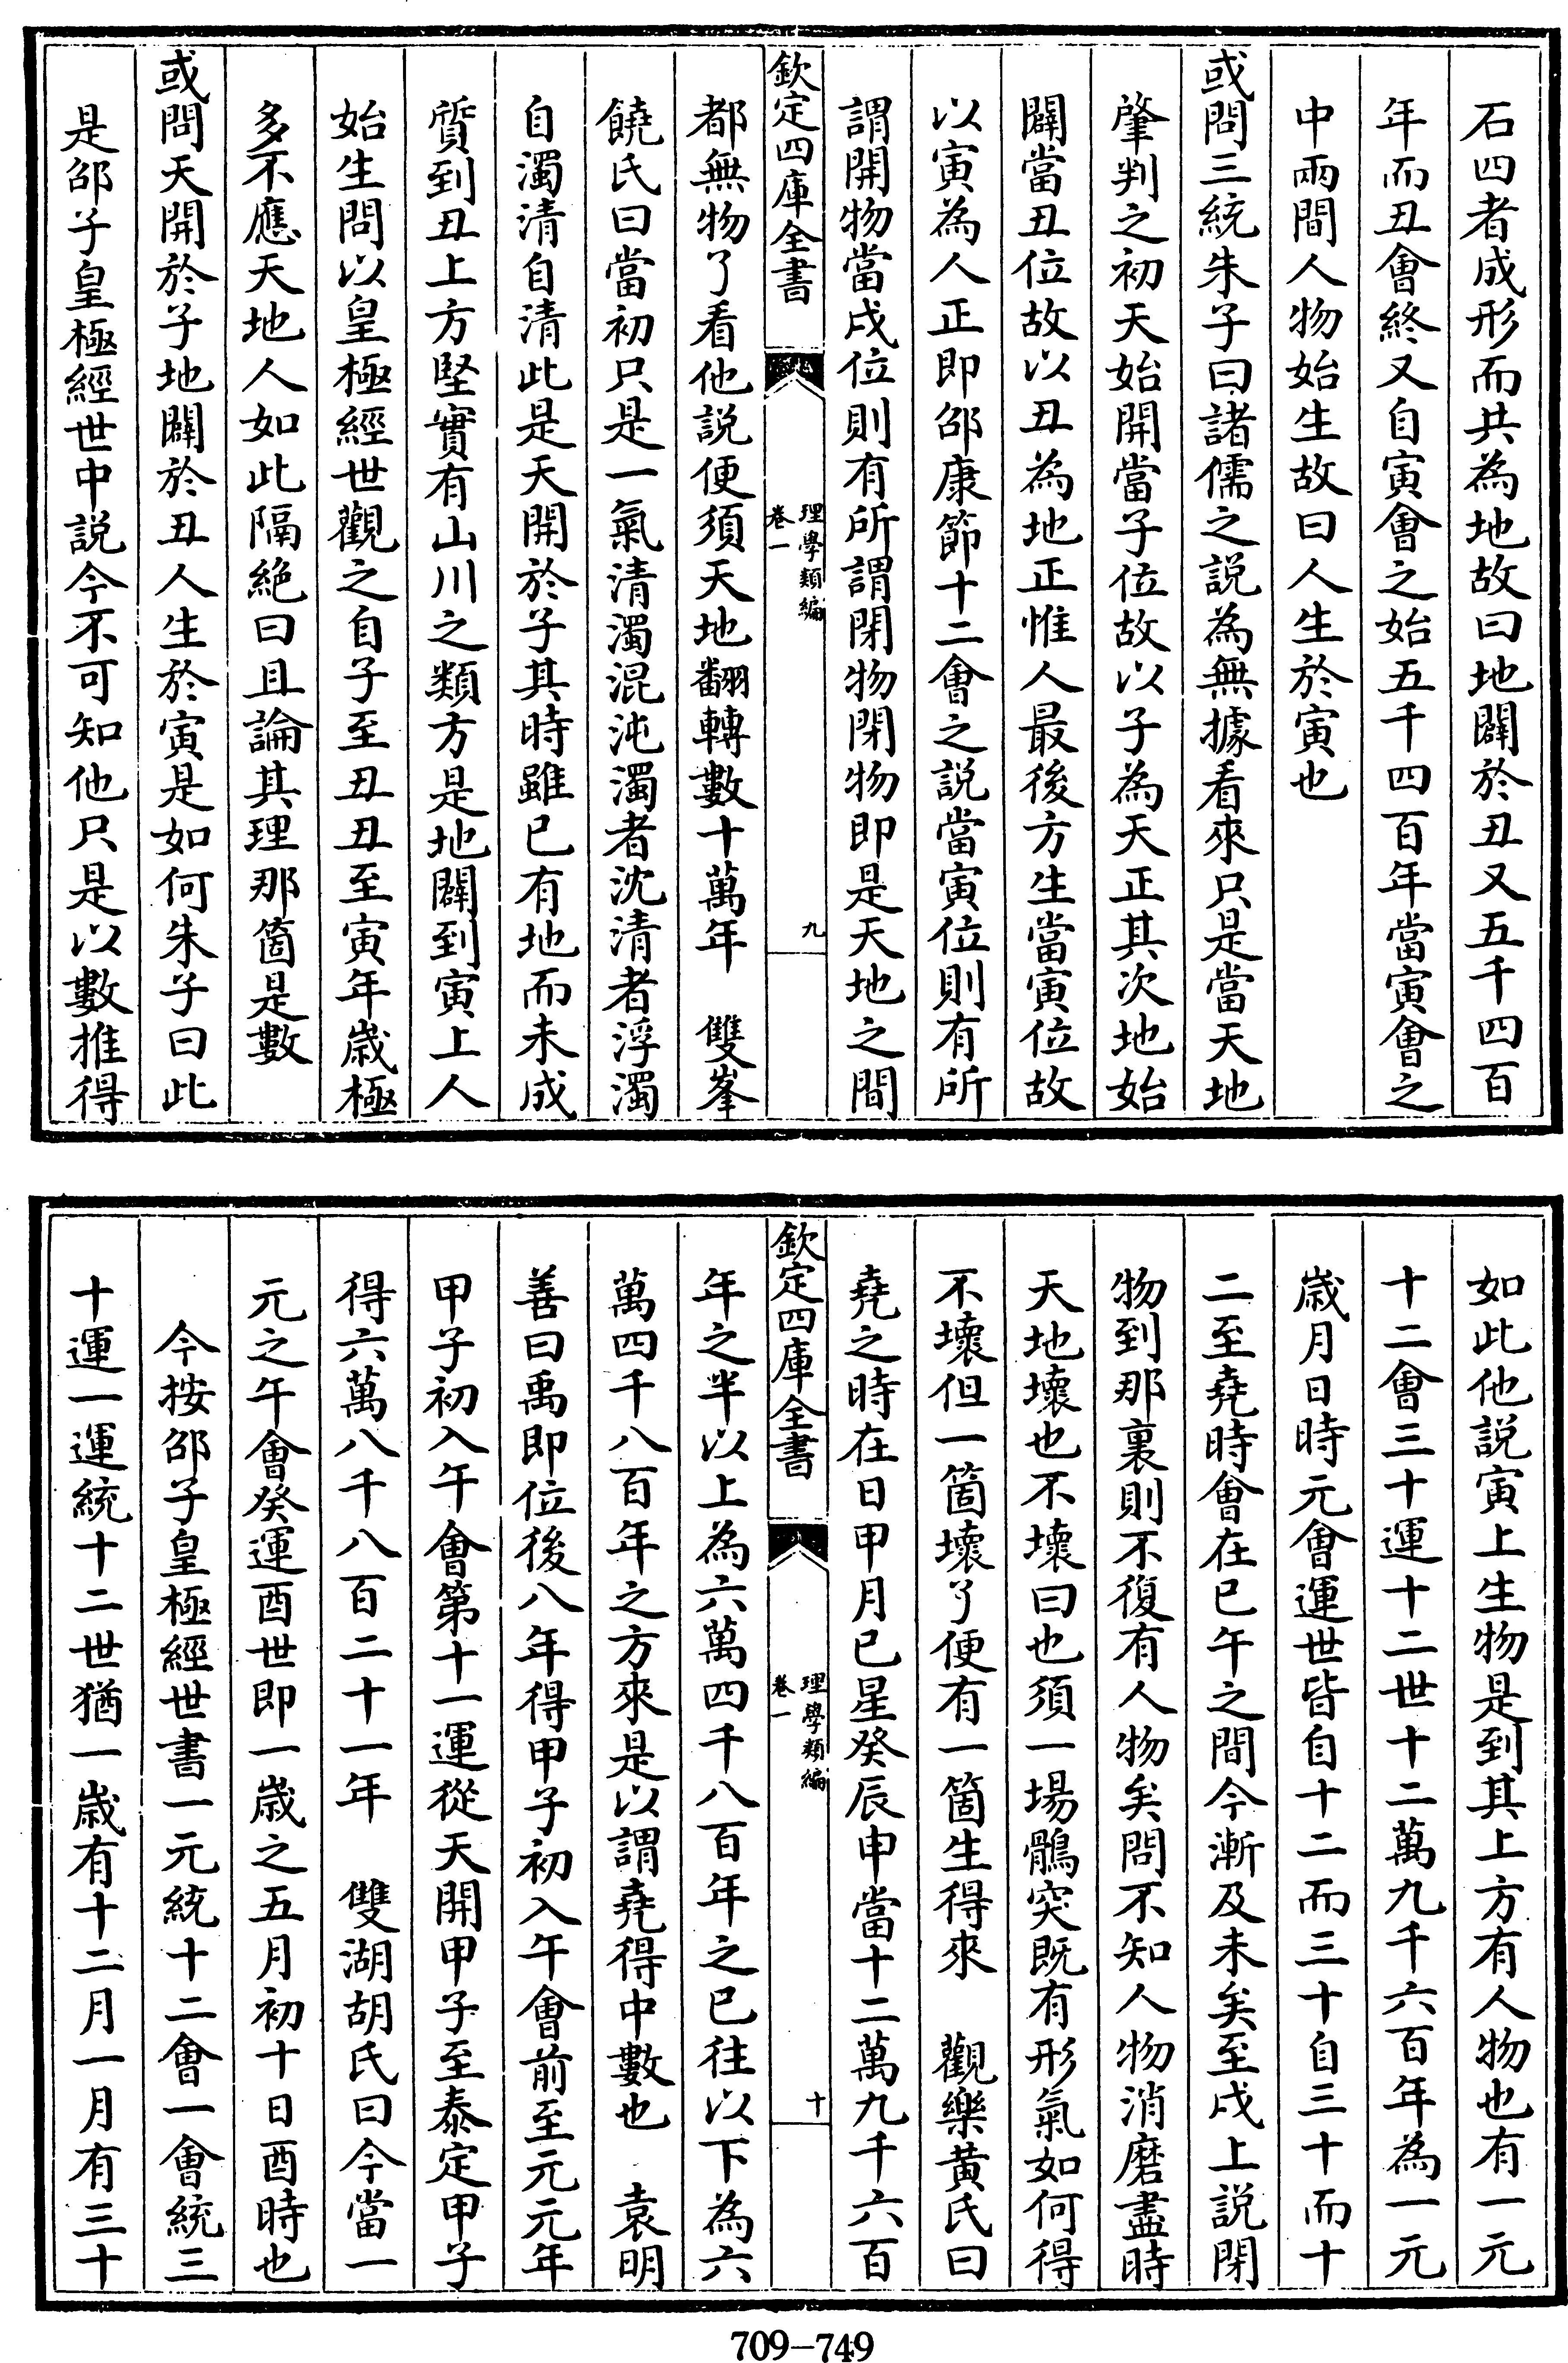 石四者成形而共為地故曰地闢於丑又五千四百
年而丑會終又自寅會之始五千四百年當寅會之
中兩間人物始生故曰人生於寅也
或問三統朱子曰諸儒之説為無據看來只是當天地
肇判之初天始開當子位故以子為天正其次地始
闢當丑位故以丑為地正惟人最後方生當寅位故
以寅為人正即邵康節十二會之説當寅位則有所
謂開物當戌位則有所謂閉物閉物即是天地之間
欽定四庫全書
理學類編
卷一
九
都無物了看他説便須天地翻轉數十萬年 雙峯
饒氏曰當初只是一氣清濁混沌濁者沈清者浮濁
自濁清自清此是天開於子其時雖已有地而未成
質到丑上方堅實有山川之類方是地闢到寅上人
始生問以皇極經世觀之自子至丑丑至寅年嵗極
多不應天地人如此隔絶曰且論其理那箇是數
或問天開於子地闢於丑人生於寅是如何朱子曰此
是邵子皇極經世中説今不可知他只是以數推得
如此他説寅上生物是到其上方有人物也有一元
十二會三十運十二世十二萬九千六百年為一元
嵗月日時元會運世皆自十二而三十自三十而十
二至堯時會在巳午之間今漸及未矣至戌上説閉
物到那裏則不復有人物矣問不知人物消磨盡時
天地壞也不壞曰也須一塲鶻突既有形氣如何得
不壞但一箇壞了便有一箇生得來 觀樂黃氏曰
堯之時在日甲月巳星癸辰申當十二萬九千六百
欽定四庫全書
理學類編
卷一
十
年之半以上為六萬四千八百年之已往以下為六
萬四千八百年之方來是以謂堯得中數也 袁明
善曰禹即位後八年得甲子初入午會前至元元年
甲子初入午會第十一運從天開甲子至泰定甲子
得六萬八千八百二十一年 雙湖胡氏曰今當一
元之午會癸運酉世即一嵗之五月初十日酉時也
今按邵子皇極經世書一元統十二會一會統三
十運一運統十二世猶一嵗有十二月一月有三十
709-749